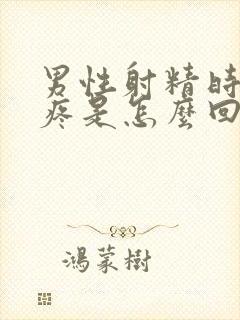 男性射精時
疼是怎麼回
鴻蒙樹